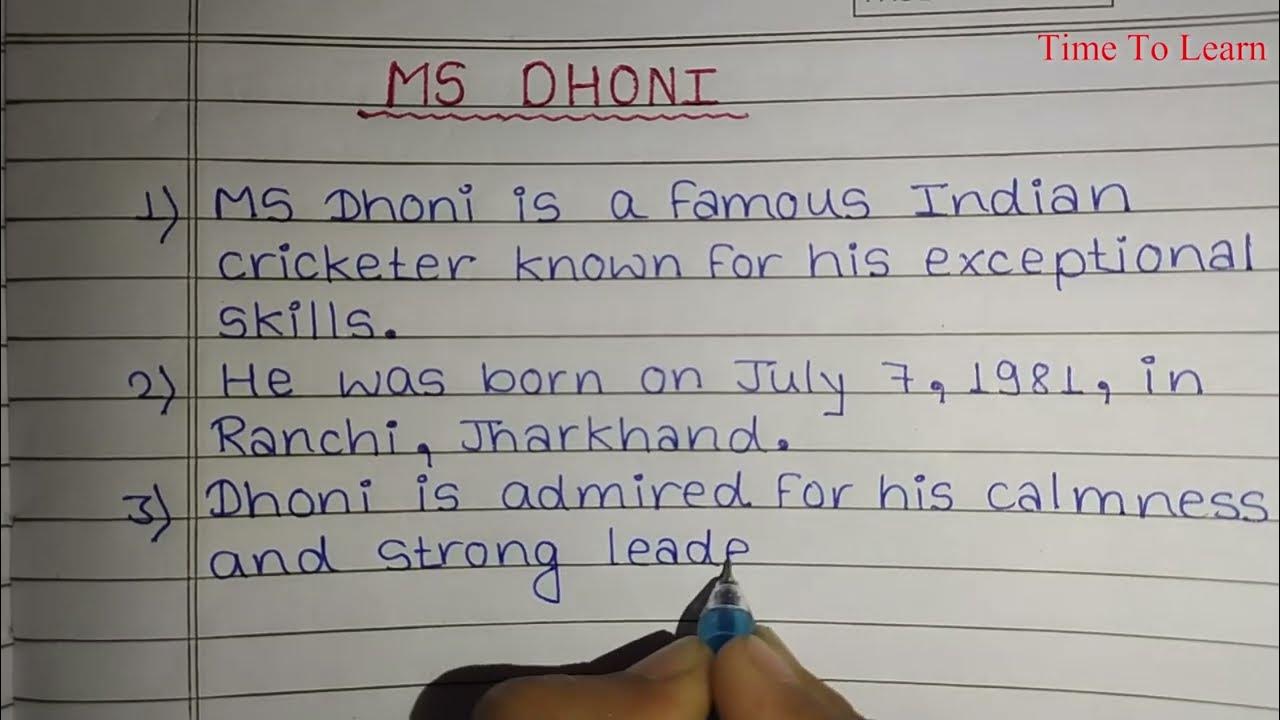 Time To Learn
MS DHONI
1) MS Dhoni is a famous Indian
cricketer known for his exceptional
skills.
2) He was born on July 7, 1981, in
Ranchi, Jharkhand.
3) Dhoni is admired for his calmness
and strong leade